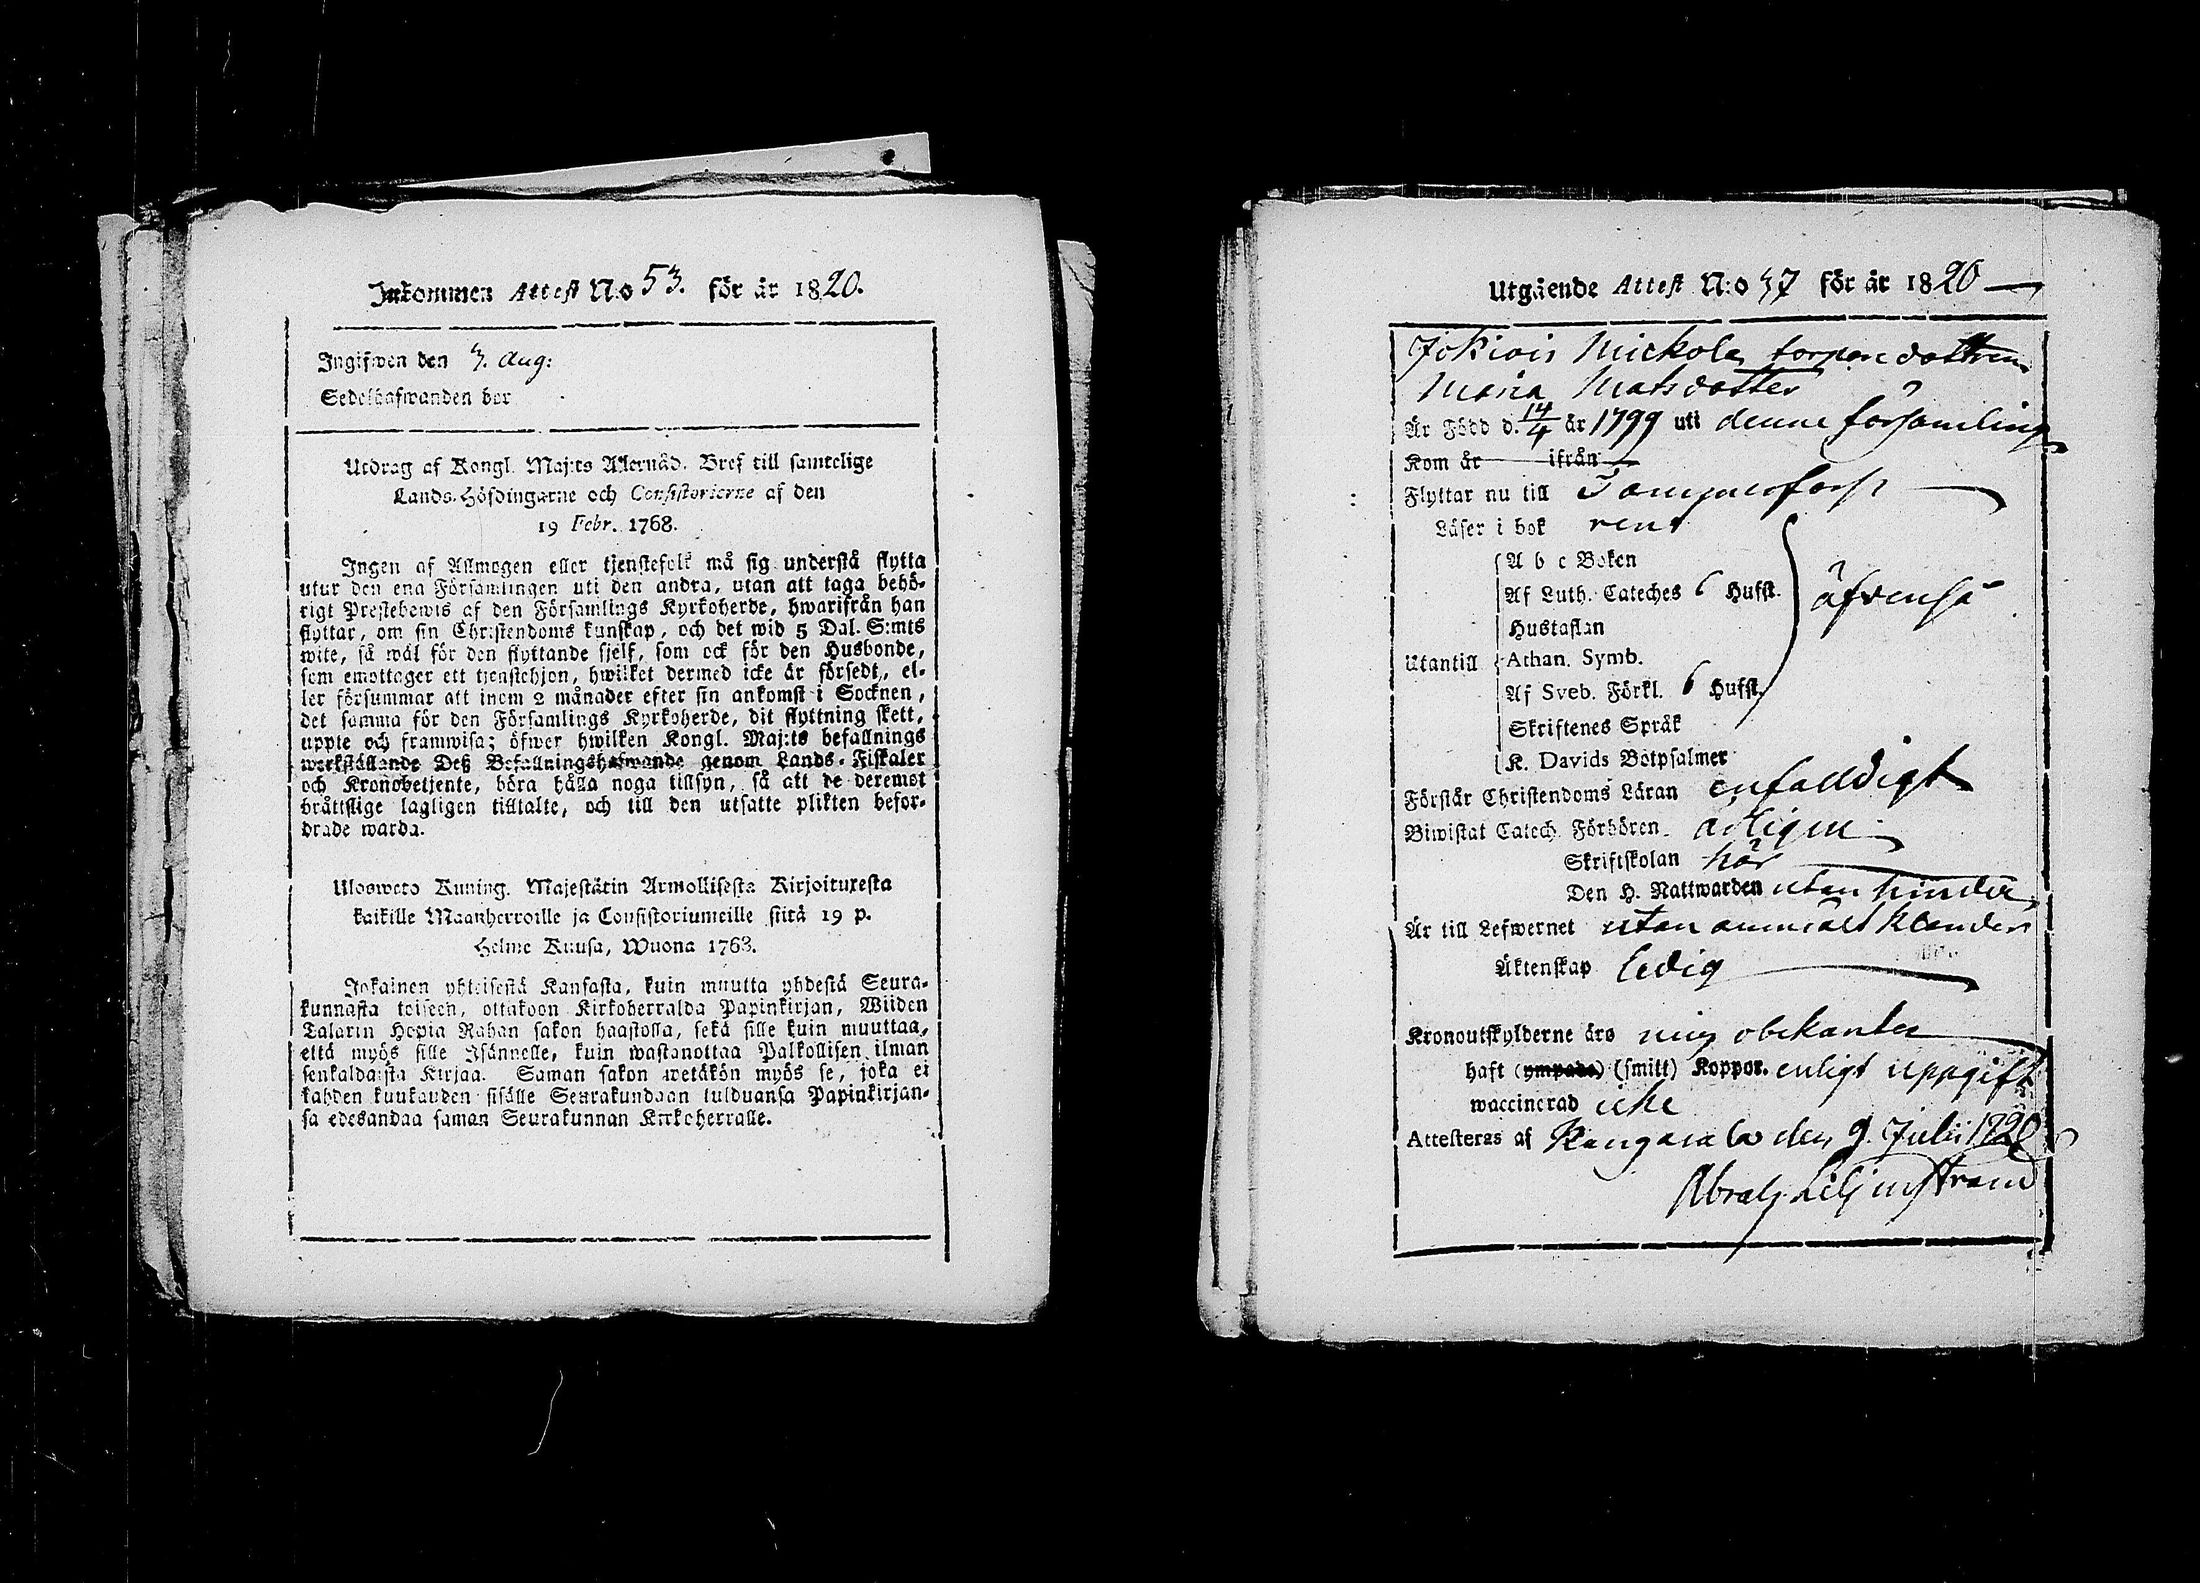 Inkommen Attest N:o 53. för år 1820.
Ingifwen den 3. Aug:
Sedelöafwanden bor
Utdrag af Kongl. Maj:ts Allernåd. Bref till samtelige
Lands-Höfdingarne och Consistorierne af den
19 Febr. 1768.
Ingen af Allmogen eller tjenstefolk må sig understå flytta
utur den ena Församlingen uti den andra, utan att taga behö-
rigt Prestebewis af den Församlings Kyrkoherde, hwarifrån han
flyttar, om sin Christendoms kunskap, och det wid 5 Dal. S:mts
wite, så wäl för den flyttande sjelf, som ock för den Husbonde,
som emottager ett tjenstehjon, hwilket dermed icke är försedt, el-
ler försummar att inom 2 månader efter sin ankomst i Socknen,
det samma för den Församlings Kyrkoherde, dit flyttning skett,
uppte och framwisa; öfwer hwilken Kongl. Maj:ts befallnings
werkställande Deß Befallningshafwande genom Lands-Fiskaler
och Kronobetjente, böra hålla noga tillsyn, så att de deremot
bråttslige lagligen tilltalte, och till den utsatte plikten befor-
drade warda.
Ulosweto Kuning. Majestätin Armollisesta Kirjoituxesta
kaikille Maanherroille ja Consistoriumeille siitä 19 p.
Helme Kuusa, Wuona 1768.
Jokainen yhteisestä Kansasta, kuin muutta yhdestä Seura-
kunnasta toiseen, ottakoon Kirkoherralda Papinkirjan, Wiiden
Talarin Hopia Rahan sakon haastolla, sekä sille kuin muuttaa,
että myös sille Isännelle, kuin wastanottaa Palkollisen ilman
senkaldaista Kirjaa. Saman sakon wetäkön myös se, joka ei
kahden kuukauden sisälle Seurakundaan tulduansa Papinkirjan-
sa edesandaa saman Seurakunnan Kirkoherralle.
Utgående Attest N:o 37 för år 1820
Jokiois Mickola torpare dottren
Maria Matsdotter
Är Född d. 14/4 år 1799 uti denne församling
Kom år ifrån
Flyttar nu till
Läser i bok rent
A b c Boken
Af Luth. Cateches 6 Hufst. äfvenså
Hustaflan
Utantill Athan. Symb.
Af Sveb. Förkl. 6 Hufst.
Skriftenes Språk
K. Davids Botpsalmer
Förstår Christendoms Läran enfaldigt
Biwistat Catech. Förhören årligen
Skriftskolan här
Den H. Nattwarden utan hinder
Är till Lefwernet utan anmält klander
Äktenskap ledig
Kronoutskylderne äro mig obekanta
haft (ympade) (smitt) Koppor. enligt uppgift
waccinerad icke
Attesteras af Kangasala den 9. Julii 1820
Abrah. Liljinstrand